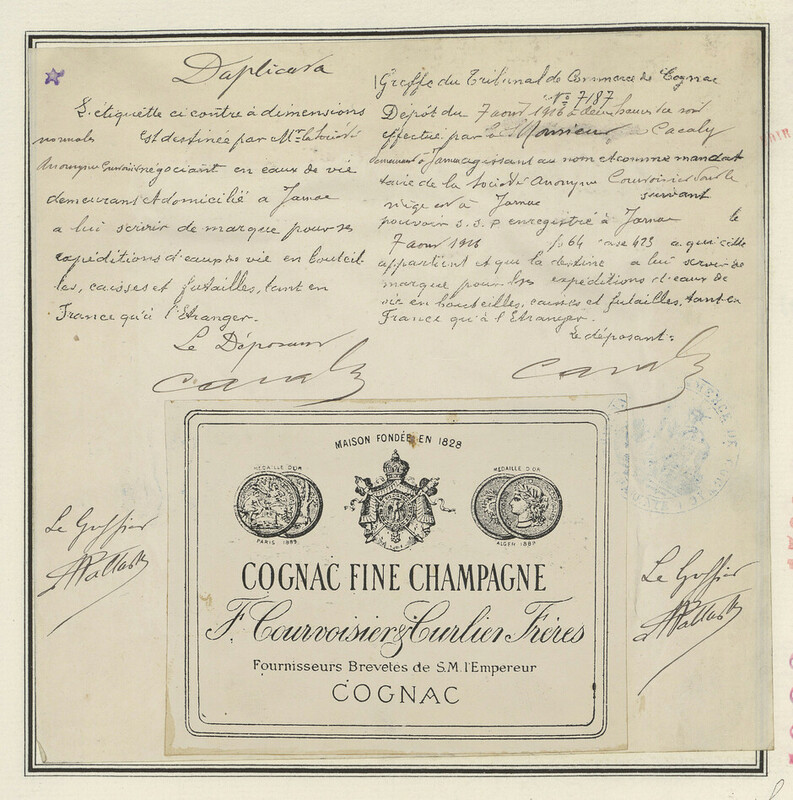 Duplicata
L'étiquette ci contre à dimensions
normales est destinée par Mr la Société
Anonyme Courvoisier négociant en eaux de vie
demeurant et domicilié à Jarnac
a lui servir de marque pour ses
expéditions d'eaux de vie en bouteil
les, caisses et futailles, tant en
France qu'à l'Etranger.
Le Déposant
Greffe du Tribunal de Commerce de Cognac
No 7187
Dépôt du 7 aout 1916 à deux heures du soir
effectué par Monsieur Cacaly
demeurant à Jarnac agissant au nom et comme manda
taire de la Société Anonyme Courvoisier dont le
siège est à Jarnac suivant
pouvoir s.s.p enregistré à Jarnac le
7 aout 1916 fo 64 case 473 a qui elle
appartient et que la destine a lui servir de
marque pour ses expéditions d'eaux de
vie en bouteilles, caisses et futailles, tant en
France qu'à l'Etranger.
Le déposant:
MAISON FONDÉE EN 1828
MEDAILLE D'OR
PARIS 1889
MEDAILLE D'OR
COGNAC FINE CHAMPAGNE
F. Courvoisier & Curlier Frères
Fournisseurs Brevetés de S.M. l'Empereur
COGNAC
Le Greffier
Le Greffier